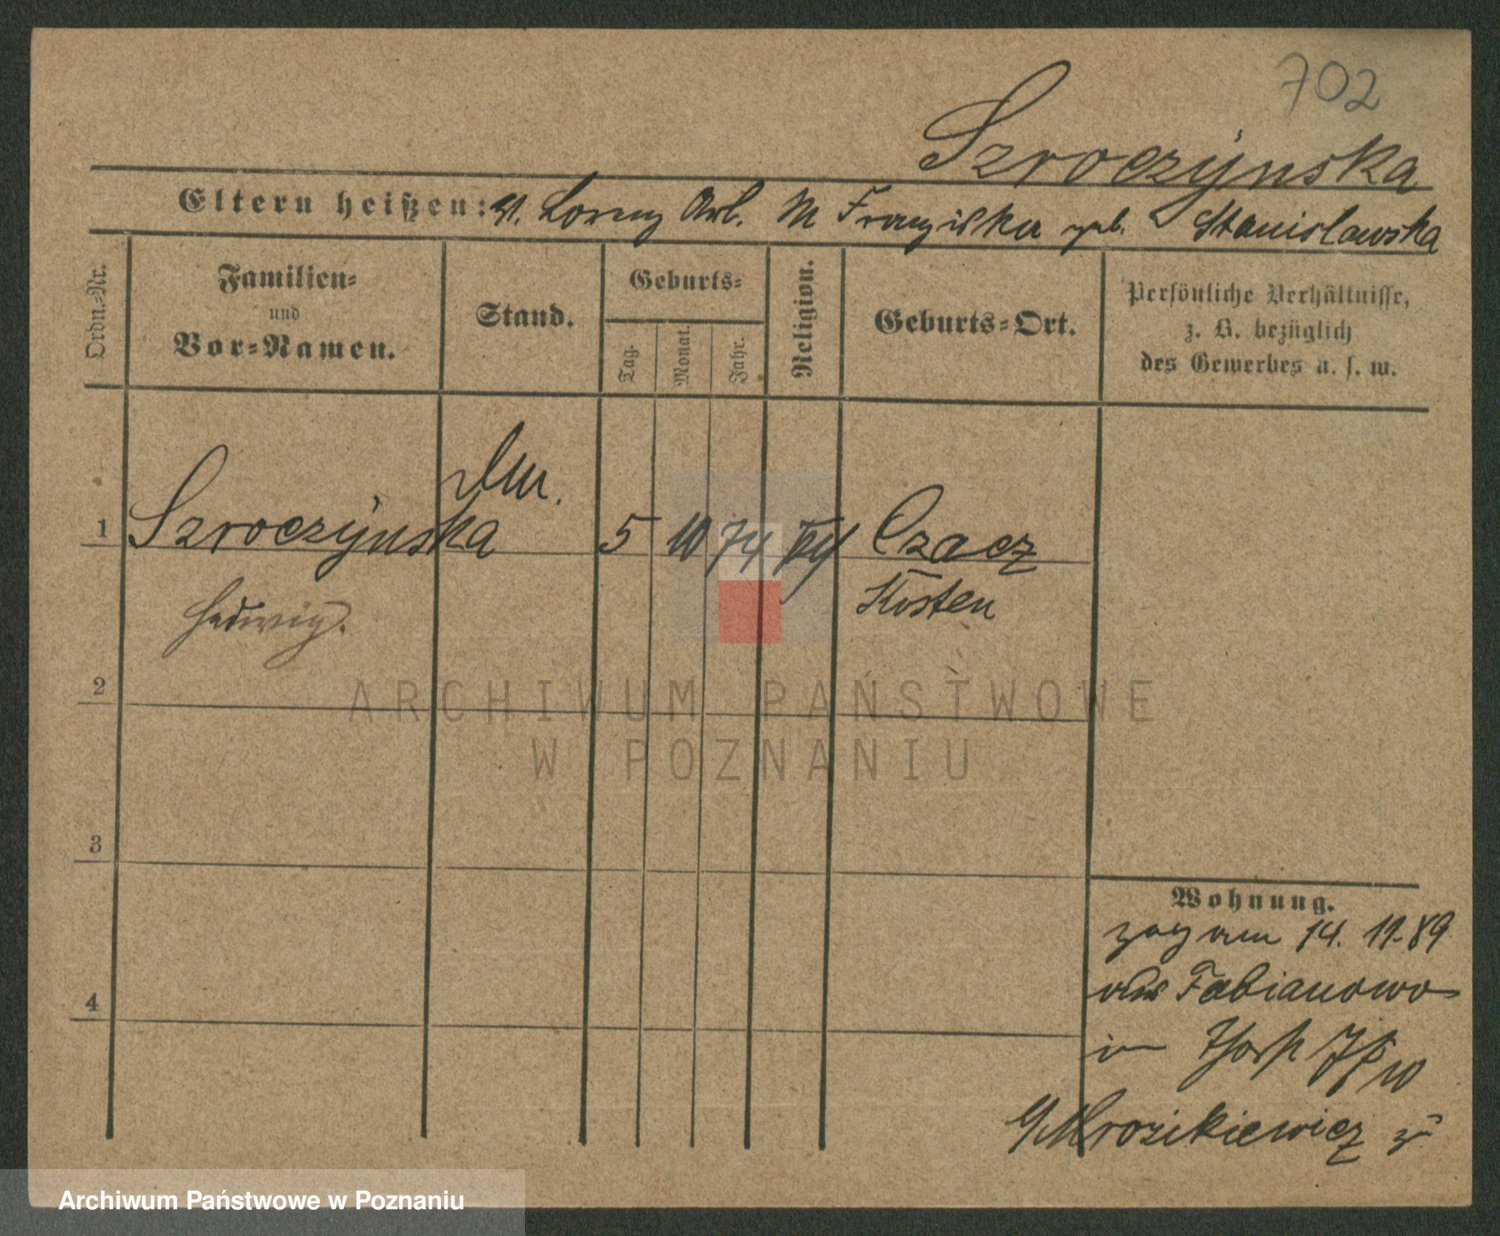 702
Szroczynska
Eltern heißen: V. Lorenz Arb. M Franziska geb. Stanislawska
Ordn.-Nr.
Familien-
und
Vor-Namen.
Stand.
Geburts-
Tag.
Monat.
Jahr.
Religion.
Geburts-Ort.
Persönliche Verhältnisse,
z. B. bezüglich
des Gewerbes u. s. w.
1 Szroczynska 5 10 74 Czacz
Hedwig. Kosten
2
ARCHIWUM PAŃSTWOWE
W POZNANIU
3
Wohnung.
zog am 14. 11. 89
aus Fabianowo
in
Mrozikiewicz zu
4
Archiwum Państwowe w Poznaniu